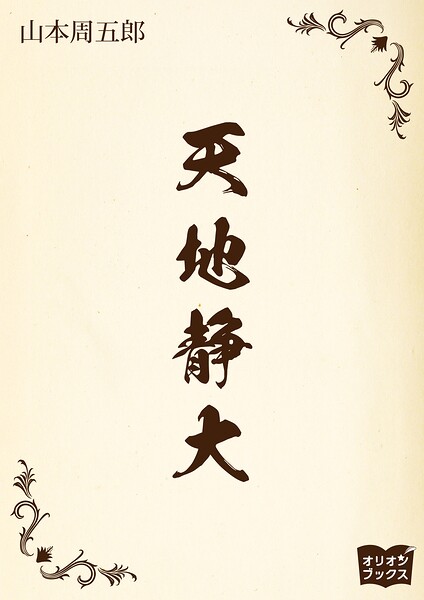 山本周五郎
天地静大
オリオン
ブックス